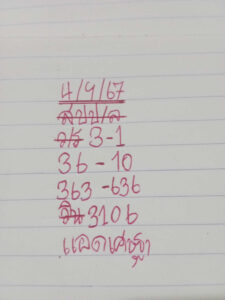 4/9/67
สปป/ล
ว/ร 3-1
36-10
363-636
วิน 3106
แอดเศรษฐา